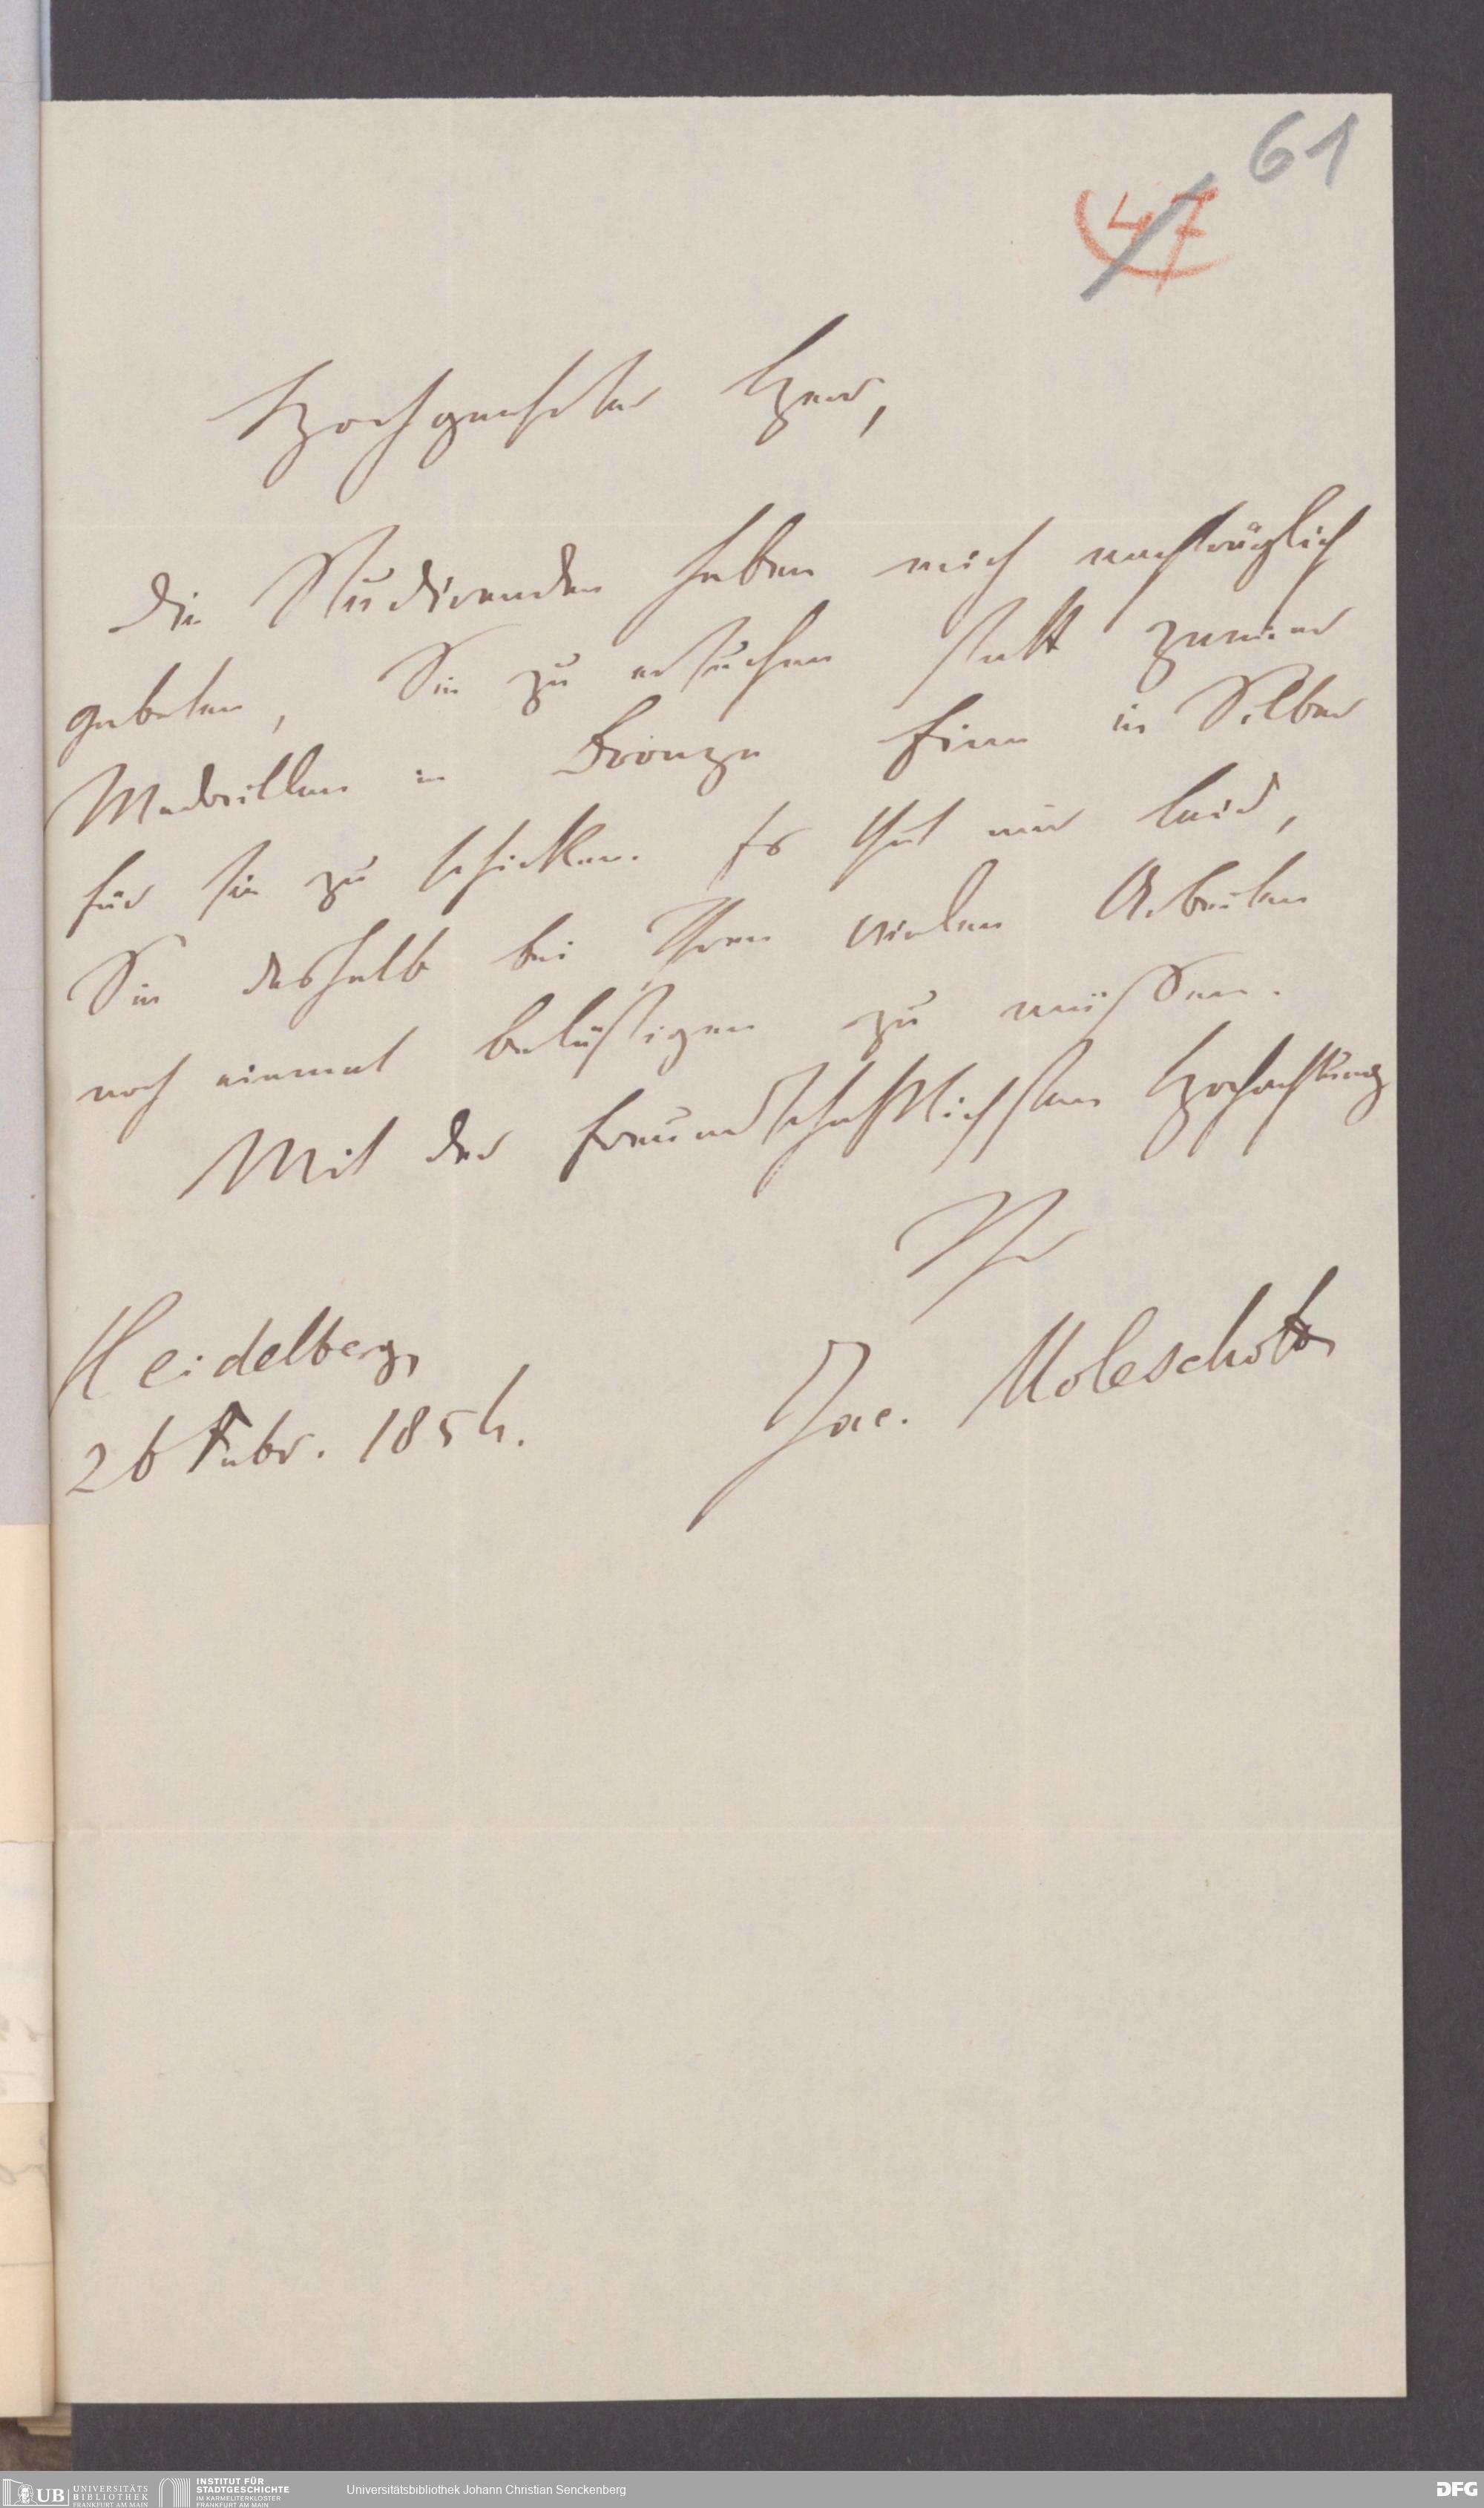 61
47
Hochgeehrter Herr,
die Studirenden haben mich nachträglich
gebeten, Sie zu ersuchen statt zweier
Medaillen in Bronze Eine in Silber
für sie zu schicken. Es thut mir leid,
Sie deshalb bei Ihren vielen Arbeiten
noch einmal belästigen zu müssen.
Mit der freundschaftlichsten Hochachtung
Ihr
Jac. Moleschott
Heidelberg,
26 Febr. 1854.
UB UNIVERSITÄTS BIBLIOTHEK FRANKFURT AM MAIN
INSTITUT FÜR STADTGESCHICHTE IM KARMELITERKLOSTER FRANKFURT AM MAIN
Universitätsbibliothek Johann Christian Senckenberg
DFG